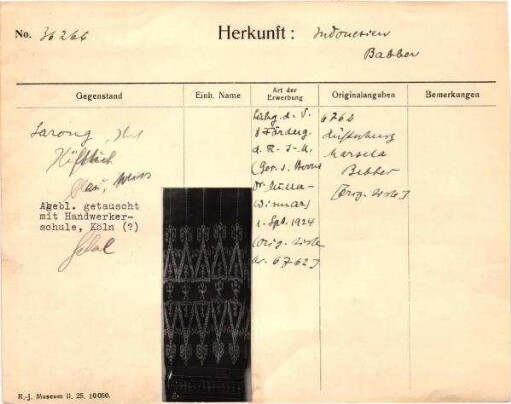 No. 36266
Herkunft: Indonesien
Babber
Gegenstand
Einh. Name
Art der
Erwerbung
Originalangaben
Bemerkungen
Sarong,
Hüfttuch
blau, weiss
Agebl. getauscht
mit Handwerker-
schule, Köln (?)
d. S.
z. Förderg.
d. R-J-M.
Dr. Müller-
Wismar)
1. Spt. 1924
(Orig. Liste
Nr. 6762)
6762
Marsela
Babber
[Orig. Liste]
R.-J. Museum II. 25. 10000.